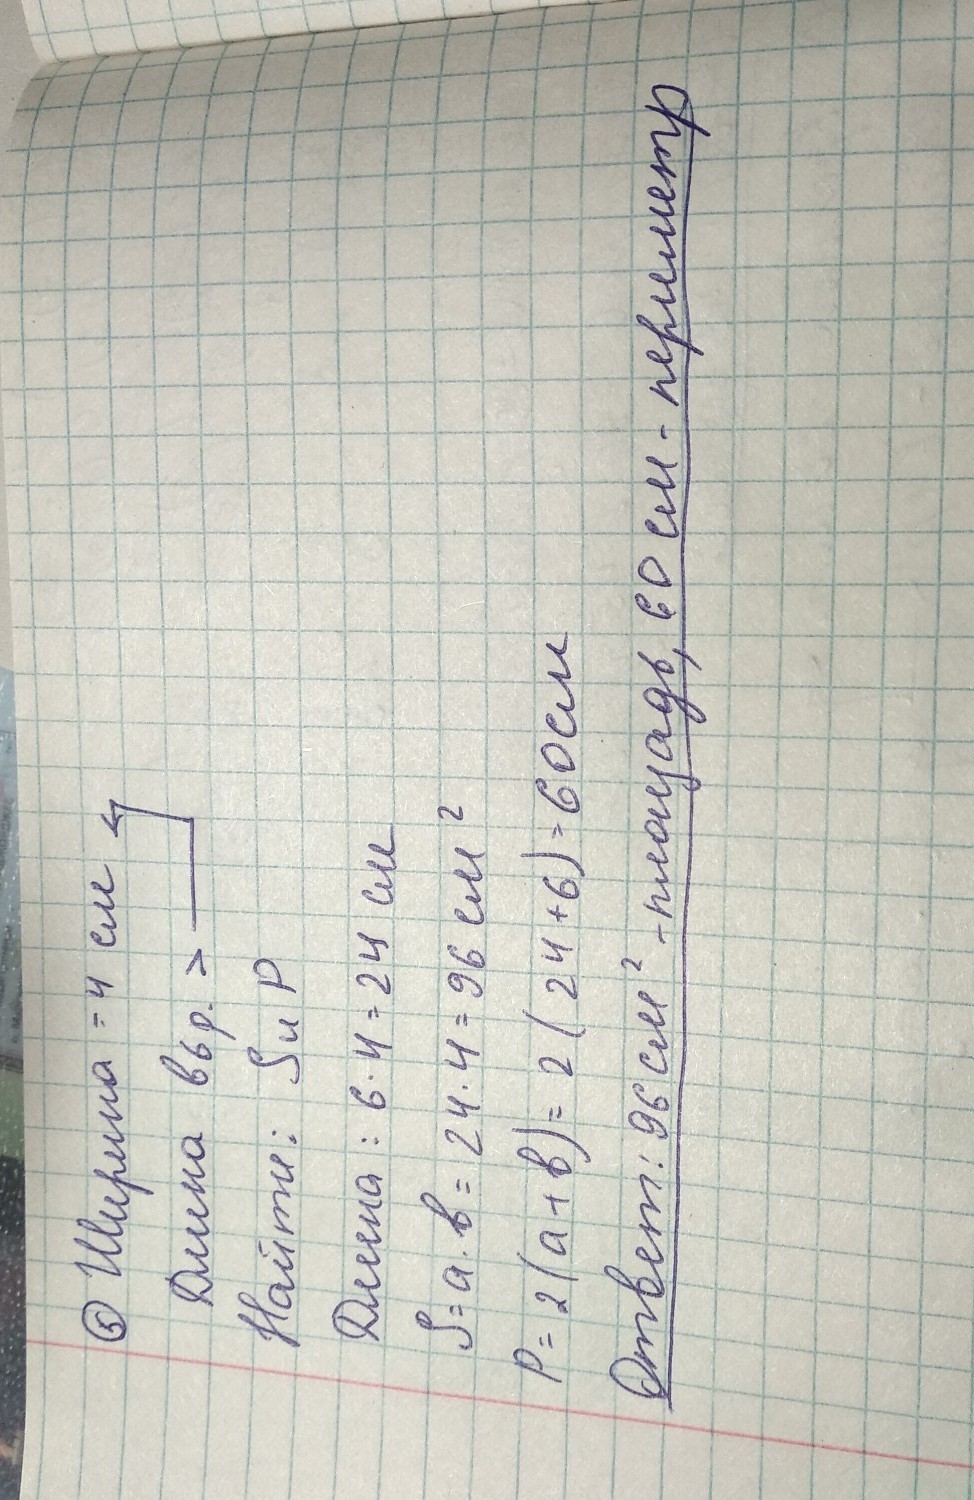 ⑤ Ширина = 4 см
Длина в 6 р. >
Найти: S и P
Длина: 6 · 4 = 24 см
S = a · в = 24 · 4 = 96 см²
P = 2 ( a + в ) = 2 ( 24 + 6 ) = 60 см
Ответ: 96 см² - площадь, 60 см - периметр